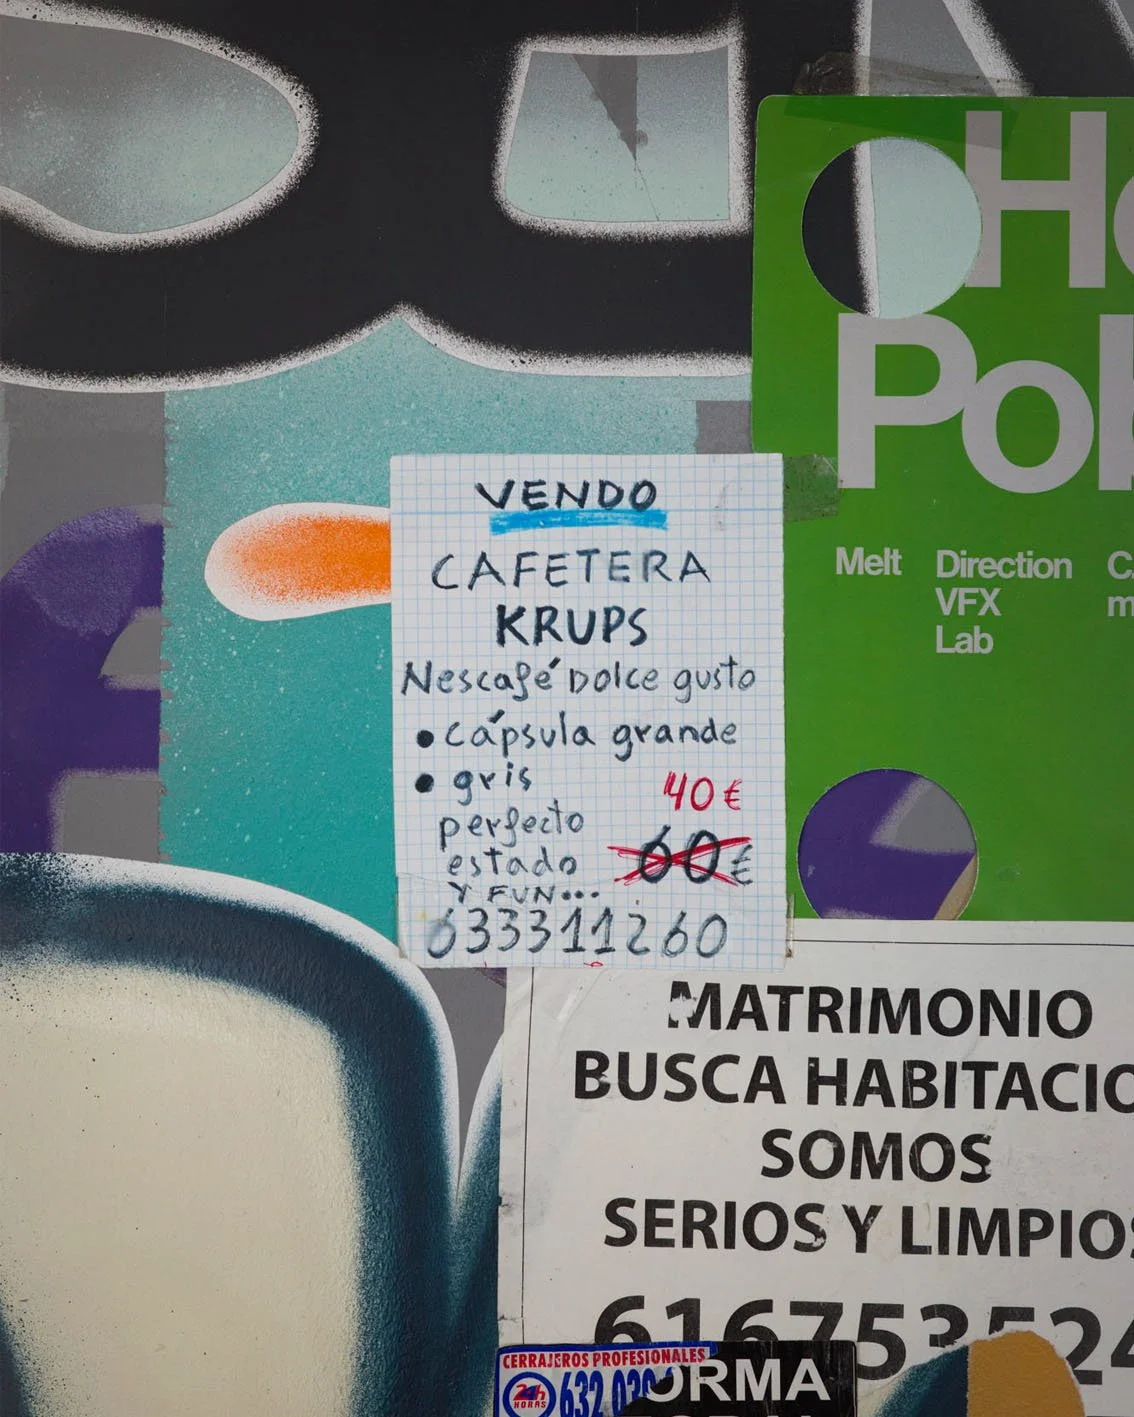 VENDO
CAFETERA
KRUPS
Nescafé Dolce gusto
• cápsula grande
• gris
40€
perfecto
60€
estado
Y FUN...
633311260
Melt
Direction
VFX
Lab
MATRIMONIO
BUSCA HABITACIO
SOMOS
SERIOS Y LIMPIOS
CERRAJEROS PROFESIONALES
24h
HORAS
632
ORMA